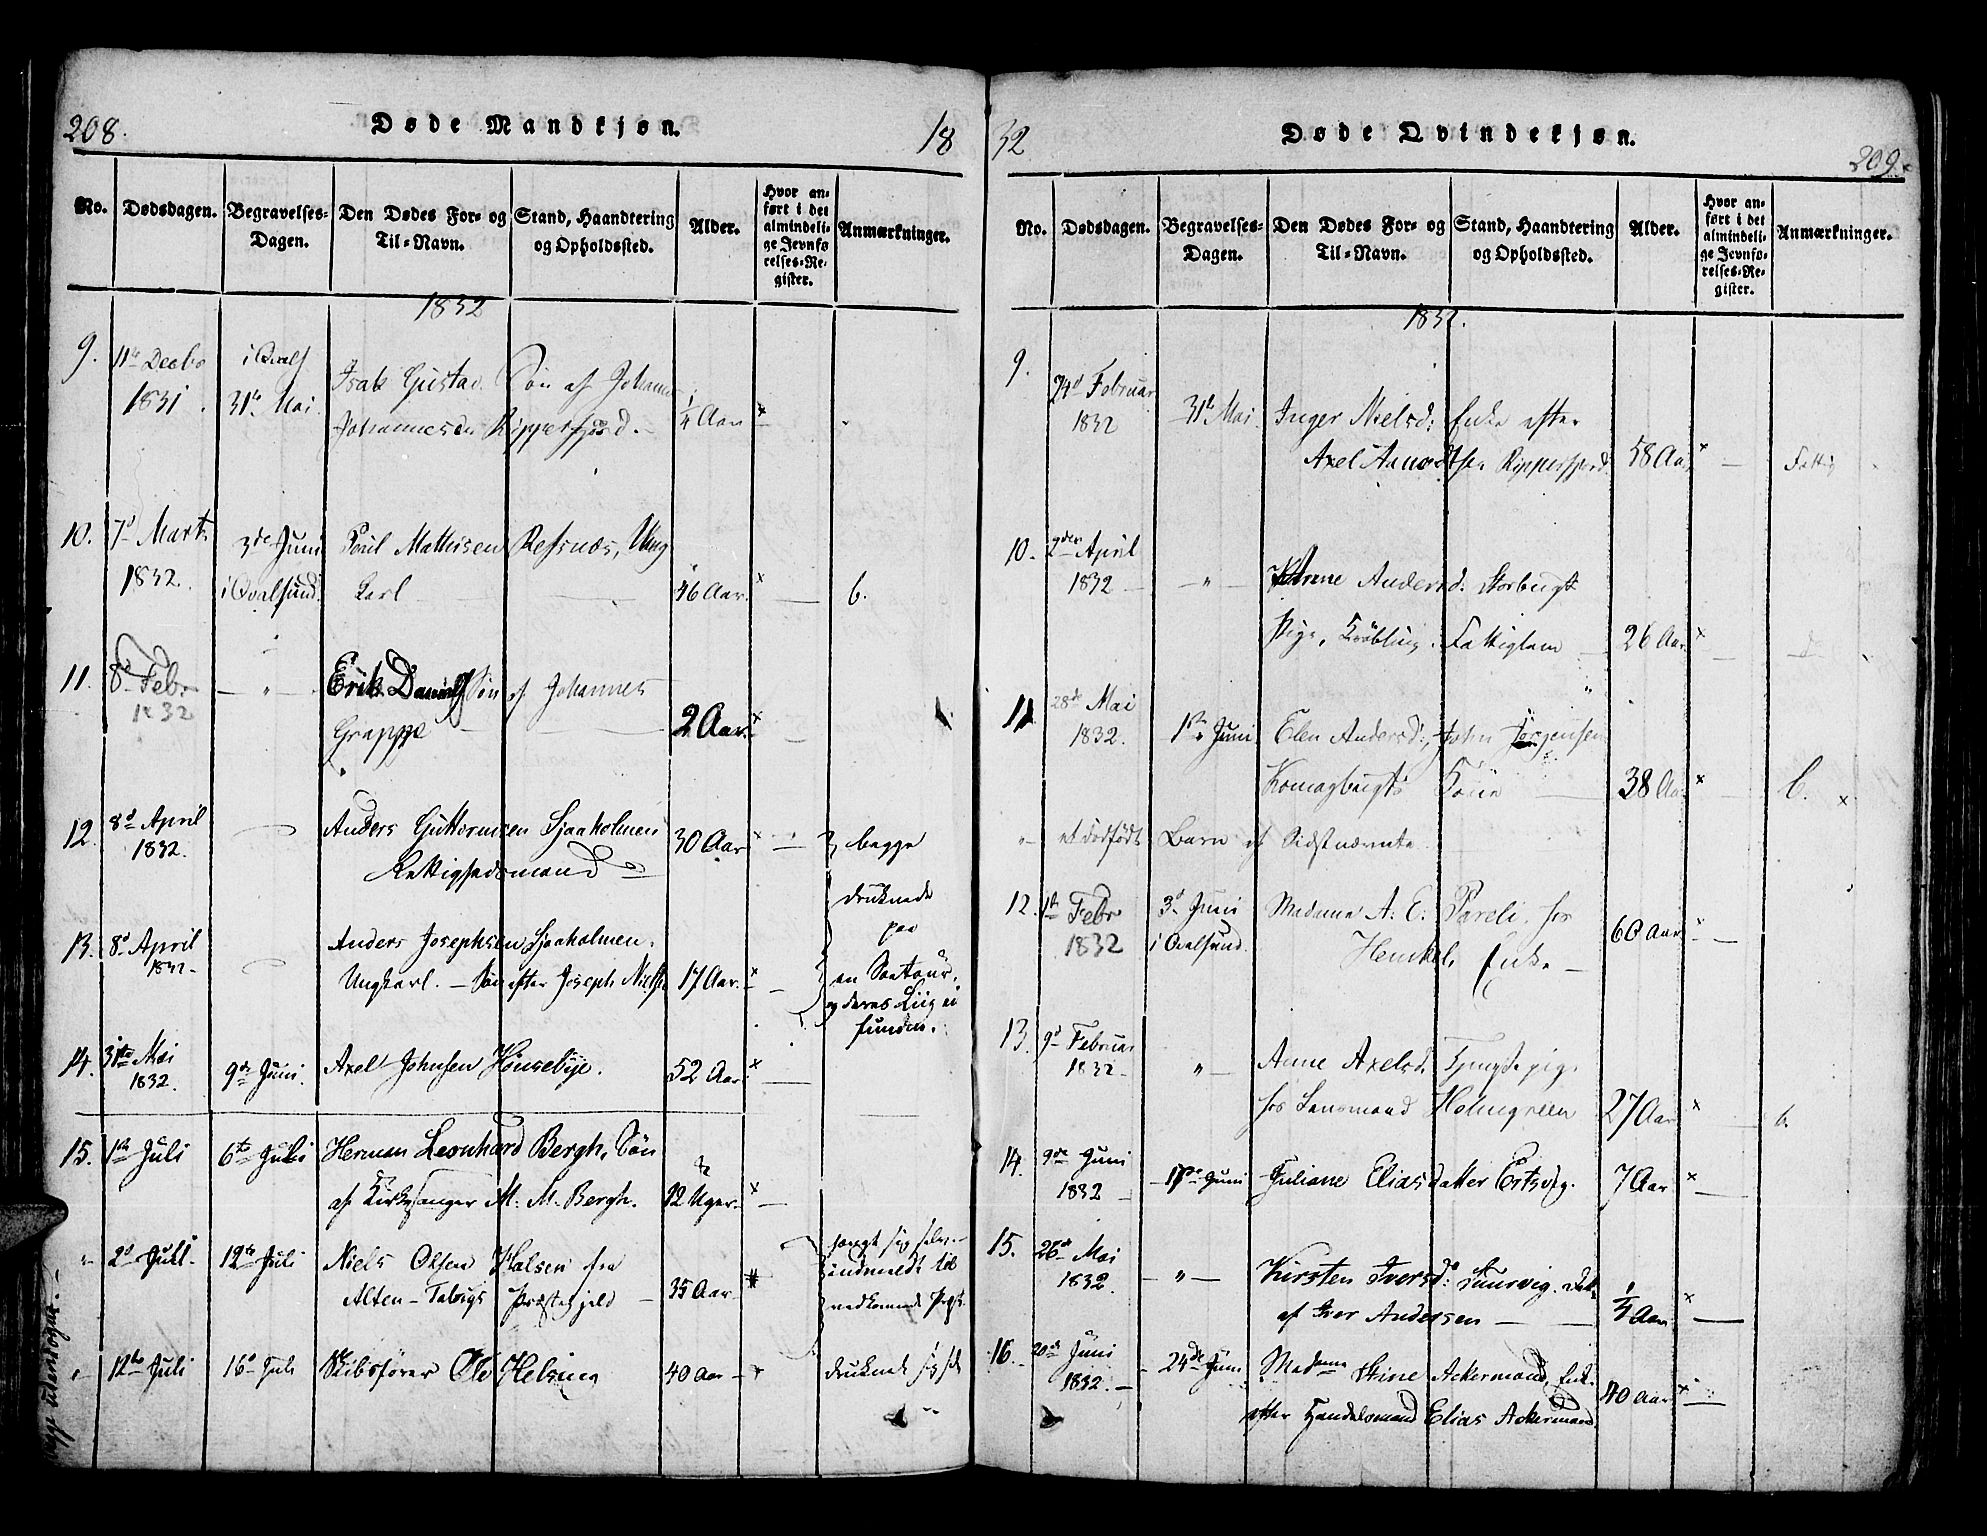 208.
Døde Mandkjøn.
18
No.
Dødsdagen.
Begravelses-
Dagen.
Den Dødes For- og
Til-Navn.
Stand, Haandtering
og Opholdssted.
Alder.
Hvor an-
ført i det
almindeli-
ge Jevnfø
relses-Re-
gister.
Anmærkninger.
1832
9. 11te Decbr
1831.
31te Mai
Isak Gustav Søn af Johannes
Johannesen Ripperfjord.
1/4 Aar
10. 7d Marts
1832.
3de Juni
i Qvalsund
Poul Mathisen Refsnæs, Ung
Karl
46 Aar
b.
11. 8d Febr
1832
"
Erik Daniel Søn af Johannes
Grappe
2 Aar
12. 8d April
1832.
Anders Guttormsen Sjaaholmen
Rettighedsmand
30 Aar
begge
druknede
paa
en Søetour,
og deres Liig ei
funden.
13. 8d April
1832
Anders Josephsen Sjaaholmen.
Ungkarl. - Søn efter Joseph Niels
17 Aar.
14. 31te Mai
1832.
9de Juni.
Axel Johnsen Hønsebye.
52 Aar
15. 1ste Juli
6te Juli
Herman Leonhard Bergh, Søn
af Kirkesanger M. M. Bergh.
12 Uger.
" 2d Juli
12te Juli
Niels Olsen Halsen fra
Alten-Talvigs Præstegjeld
35 Aar
hængt sig selv
indmeldt til
vedkommende Præst.
" 12te Juli
16d Juli
Skibsfører Ole Helsing
40 Aar
druknet sig selv
32
Døde Qvindekjøn.
209.
No.
Dødsdagen.
Begravelses-
Dagen.
Den Dødes For- og
Til-Navn.
Stand, Haandtering
og Opholdssted.
Alder.
Hvor an-
ført i det
almindeli-
ge Jevnfø-
relses-Re-
gister.
Anmærkninger.
1832.
9.
24d Februar
1832
31te Mai
Inger Nielsd: Enke efter
Axel Ripperfjord
58 Aar
Fattig
10. 2den April
1832
"
Anne Andersd: Storbugt
Pige, Krøbling, Fattiglem
26 Aar
11. 28de Mai
1832.
1ste Juni
Elen Andersd:, John Jørgensen
Komagbugts Kone
38 Aar
b.
" et dødfødt Barn af Sidstnævnte
12. 1ste Febr
1832
3d Juni
i Qvalsund.
Madame A. E. Pareli, hos
Henckel, Enke
60 Aar
13. 9d Februar
1832
"
Anne Axelsd: Tjenestepige
hos Lensmand Holmgreen
27 Aar
b.
14. 9de Juni
1832
17de Juni
Juliane Eliasdatter
7 Aar
15. 26de Mai
1832.
"
Kirsten Iversd: Datter
af Iver Andersen
1/4 Aar
16. 20de Juni
1832.
24de Juni
Madame Stine Ackermand, Enke
efter Handelsmand Elias Ackermand
40 Aar